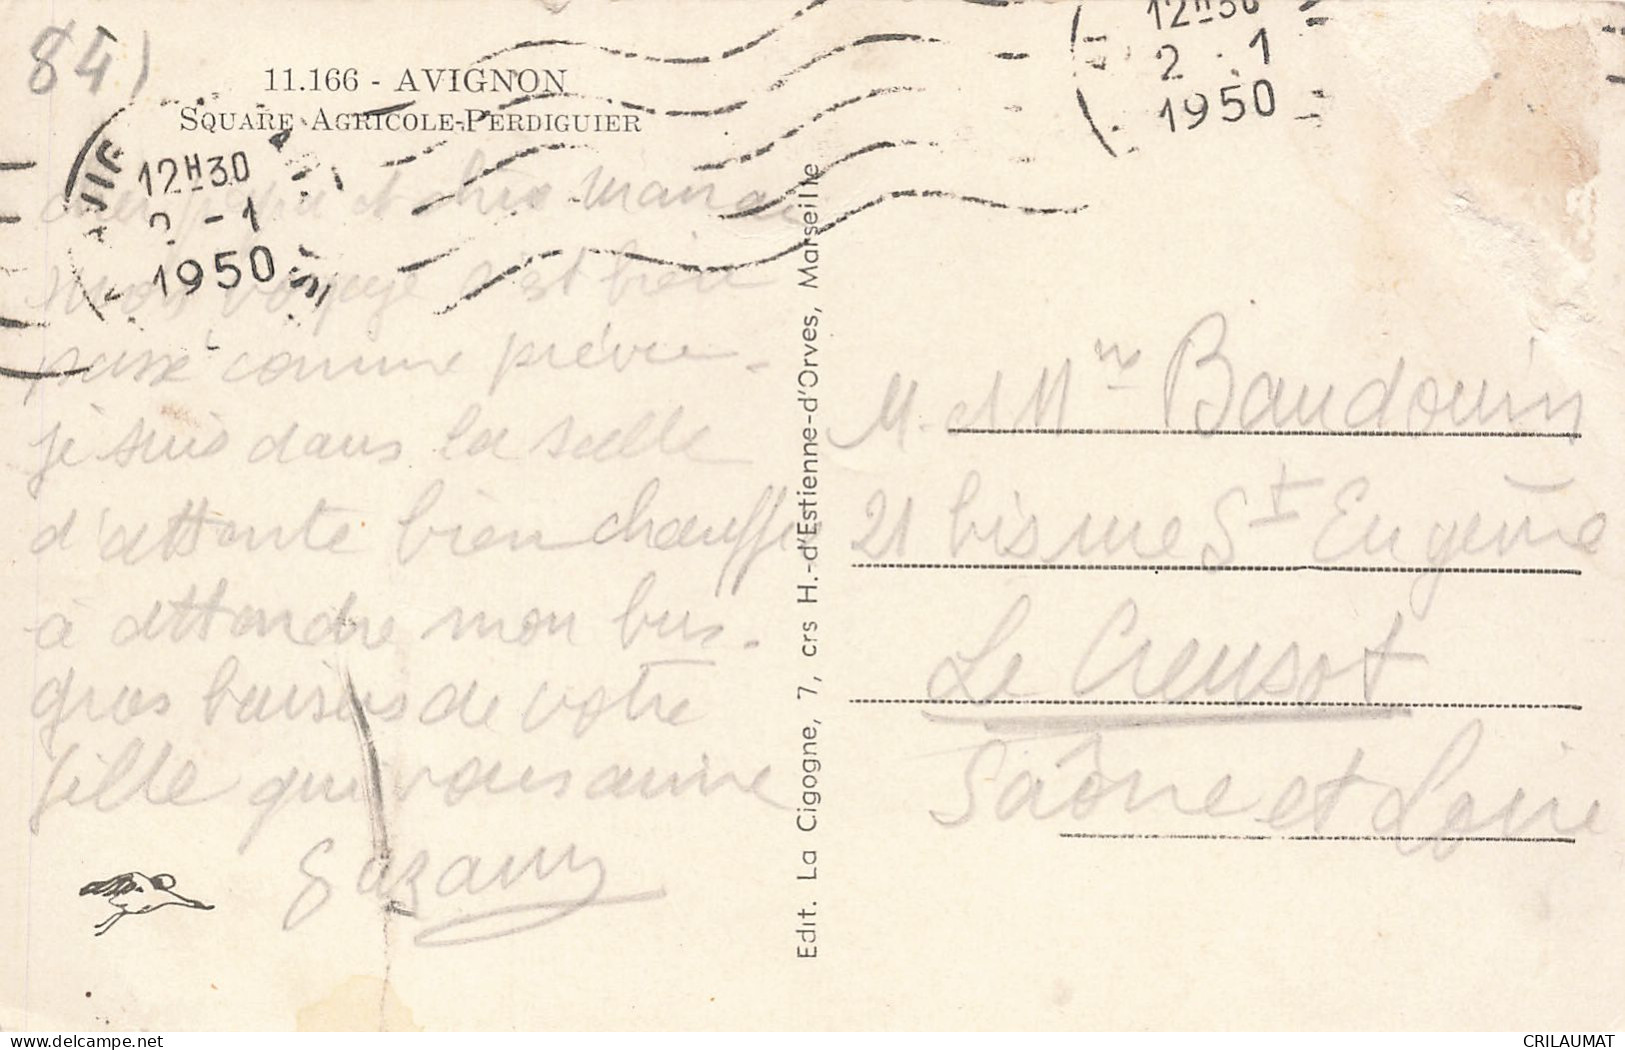 84)
11.166 - AVIGNON
SQUARE AGRICOLE-PERDIGUIER
12H30
2 - 1
1950
12H30
2 - 1
1950
et chère maman
mon voyage s'est bien
passé comme prévu -
je suis dans la salle
d'attente bien chauffé
à attendre mon bus -
gros baisers de votre
fille qui vous aime
Suzann
Edit. La Cigogne, 7, crs H.-d'Estienne-d'Orves, Marseille
M. et Mme Baudouin
21 bis rue St Eugène
Le Creusot
Saône et Loire
CRILAUMAT